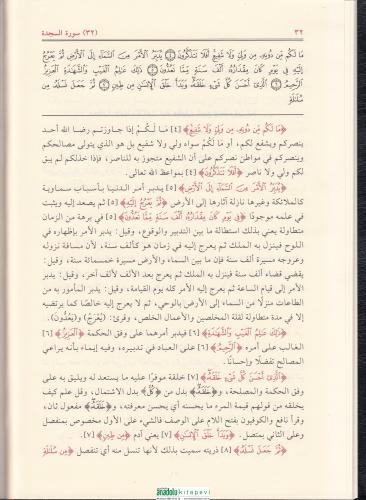 ٣٢
(٣٢) سورة السجدة
مَا لَكُم مِّن دُونِهِ مِن وَلِيٍّ وَلَا شَفِيعٍ أَفَلَا تَتَذَكَّرُونَ ۝ يُدَبِّرُ الْأَمْرَ مِنَ السَّمَاءِ إِلَى الْأَرْضِ ثُمَّ يَعْرُجُ
إِلَيْهِ فِي يَوْمٍ كَانَ مِقْدَارُهُ أَلْفَ سَنَةٍ مِّمَّا تَعُدُّونَ ۝ ذَلِكَ عَالِمُ الْغَيْبِ وَالشَّهَادَةِ الْعَزِيزُ
الرَّحِيمُ ۝ الَّذِي أَحْسَنَ كُلَّ شَيْءٍ خَلَقَهُ وَبَدَأَ خَلْقَ الْإِنسَانِ مِن طِينٍ ۝ ثُمَّ جَعَلَ نَسْلَهُ مِن
سُلَالَةٍ
﴿مَا لَكُم مِّن دُونِهِ مِن وَلِيٍّ وَلَا شَفِيعٍ﴾ [٤] مَا لَكُمْ إذا جاوزتم رضا الله أحد
ينصركم ويشفع لكم، أو مَا لَكُمْ سواه ولي ولا شفيع بل هو الذي يتولى مصالحكم
وينصركم في مواطن نصركم على أن الشفيع متجوز به للناصر، فإذا خذلكم لم يبق
لكم ولي ولا ناصر ﴿أَفَلَا تَتَذَكَّرُونَ﴾ [٤] بمواعظ الله تعالى.
﴿يُدَبِّرُ الْأَمْرَ مِنَ السَّمَاءِ إِلَى الْأَرْضِ﴾ [٥] يدبر أمر الدنيا بأسباب سماوية
كالملائكة وغيرها نازلة آثارها إلى الأرض ﴿ثُمَّ يَعْرُجُ إِلَيْهِ﴾ [٥] ثم يصعد إليه ويثبت
في علمه موجودًا ﴿فِي يَوْمٍ كَانَ مِقْدَارُهُ أَلْفَ سَنَةٍ مِّمَّا تَعُدُّونَ﴾ [٥] في برهة من الزمان
متطاولة يعني بذلك استطالة ما بين التدبير والوقوع، وقيل: يدبر الأمر بإظهاره في
اللوح فينزل به الملك ثم يعرج إليه في زمان هو كألف سنة، لأن مسافة نزوله
وعروجه مسيرة ألف سنة فإن ما بين السماء والأرض مسيرة خمسمائة سنة، وقيل:
يقضي قضاء ألف سنة فينزل به الملك ثم يعرج بعد الألف لألف آخر، وقيل: يدبر
الأمر إلى قيام الساعة ثم يعرج إليه الأمر كله يوم القيامة، وقيل: يدبر المأمور به من
الطاعات منزلًا من السماء إلى الأرض بالوحي، ثم لا يعرج إليه خالصًا كما يرتضيه
إلا في مدة متطاولة لقلة المخلصين والأعمال الخلص، وقرئ: (يُعْرَجُ) و(يَعُدُّونَ).
﴿ذَلِكَ عَالِمُ الْغَيْبِ وَالشَّهَادَةِ﴾ [٦] فيدبر أمرهما على وفق الحكمة ﴿الْعَزِيزُ﴾ [٦]
الغالب على أمره ﴿الرَّحِيمُ﴾ [٦] على العباد في تدبيره، وفيه إيماء بأنه يراعي
المصالح تفضلًا وإحسانًا.
﴿الَّذِي أَحْسَنَ كُلَّ شَيْءٍ خَلَقَهُ﴾ [٧] خلقة موفرًا عليه ما يستعد له ويليق به على
وفق الحكمة والمصلحة، و﴿خَلَقَهُ﴾ بدل من ﴿كُلَّ﴾ بدل الاشتمال، وقل علم كيف
يخلقه من قولهم قيمة المرء ما يحسنه أي يحسن معرفته، و﴿خَلَقَهُ﴾ مفعول ثان،
وقرأ نافع والكوفيون بفتح اللام على الوصف فالشيء على الأول مخصوص بمنفصل
وعلى الثاني بمتصل. ﴿وَبَدَأَ خَلْقَ الْإِنسَانِ﴾ [٧] يعني آدم ﴿مِن طِينٍ﴾ [٧].
﴿ثُمَّ جَعَلَ نَسْلَهُ﴾ [٨] ذريته سميت بذلك لأنها تنسل منه أي تنفصل ﴿مِن سُلَالَةٍ
anadolukitapevi